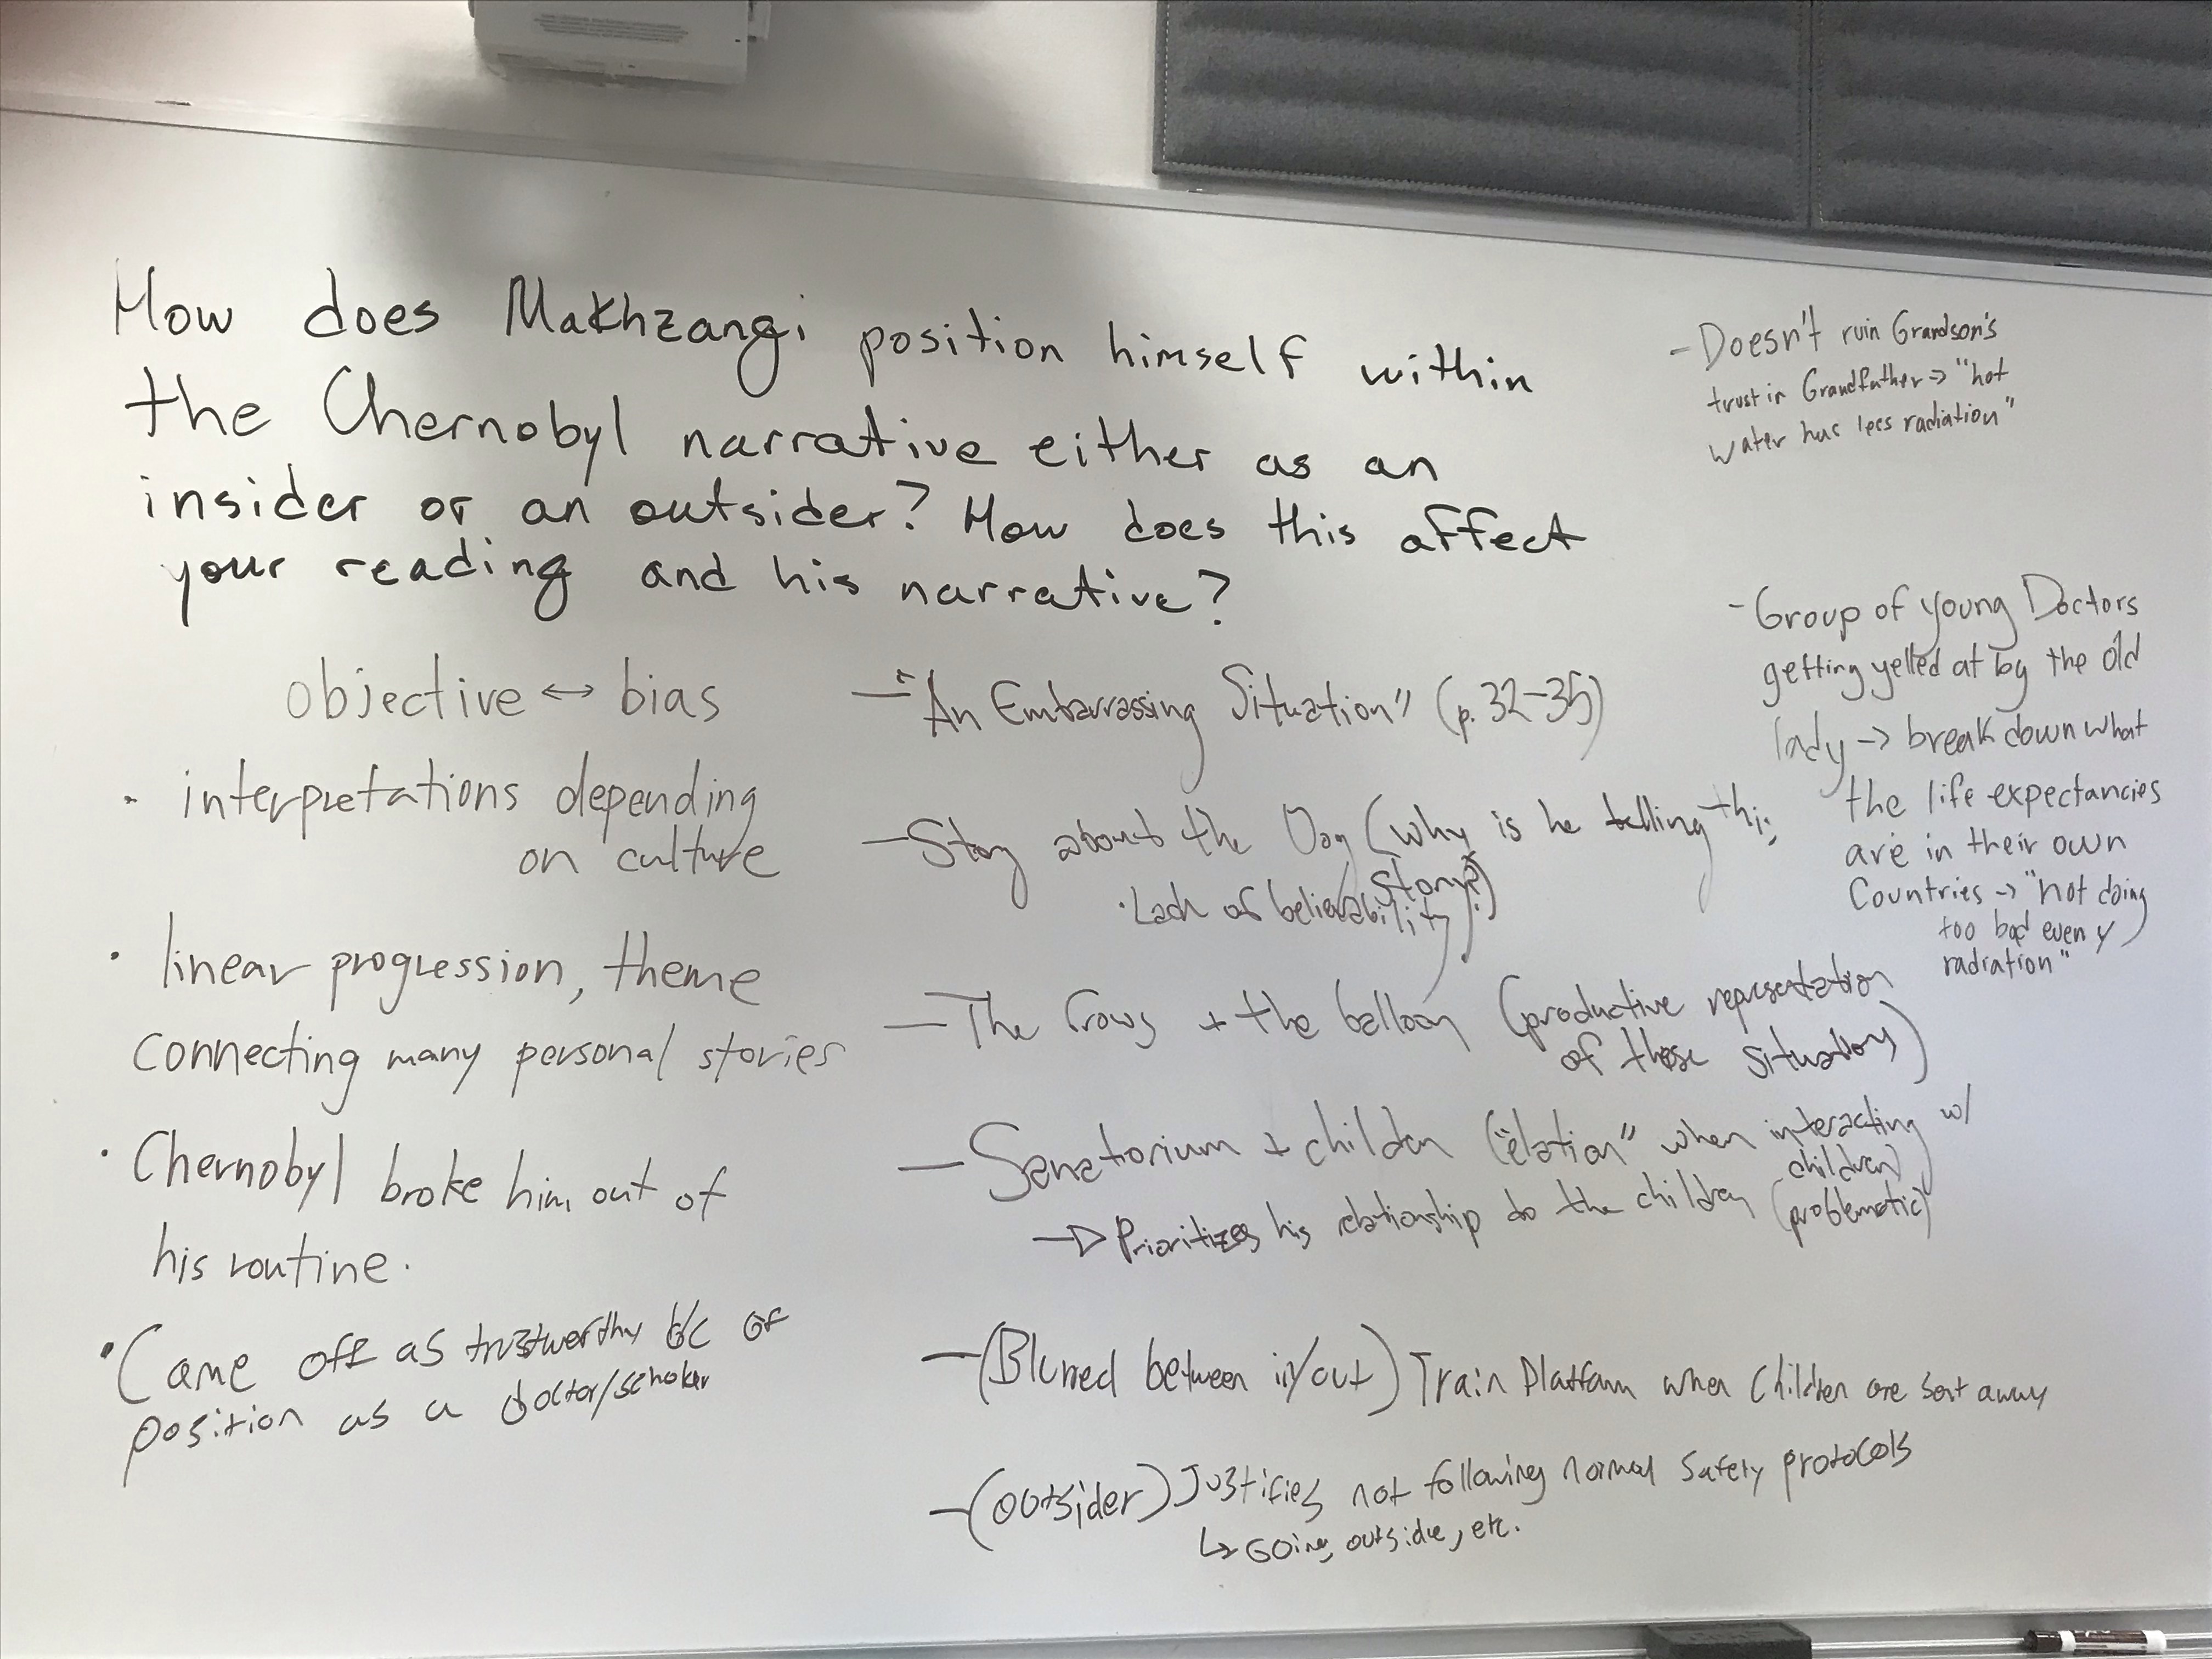 How does Makhzangi position himself within
the Chernobyl narrative either as an
insider or an outsider? How does this affect
your reading and his narrative?
objective ↔ bias
· interpretations depending
on culture
· linear progression, theme
connecting many personal stories
· Chernobyl broke him out of
his routine.
· Came off as trustworthy b/c of
position as a doctor/scholar
- "An Embarrassing Situation" (p. 32-35)
- Story about the Dog (why is he telling this
story?)
· Lack of believability
- The Crows + the balloon (productive representation
of these situations)
- Sanatorium + children ("elation" when interacting w/
children)
→ Prioritizes his relationship to the children (problematic)
- (Blurred between in/out) Train Platform when Children are sent away
- (outsider) Justifies not following normal safety protocols
↳ Going outside, etc.
- Doesn't ruin Grandson's
trust in Grandfather → "hot
water has less radiation"
- Group of young Doctors
getting yelled at by the old
lady → break down what
the life expectancies
are in their own
Countries → "not doing
too bad even
radiation"